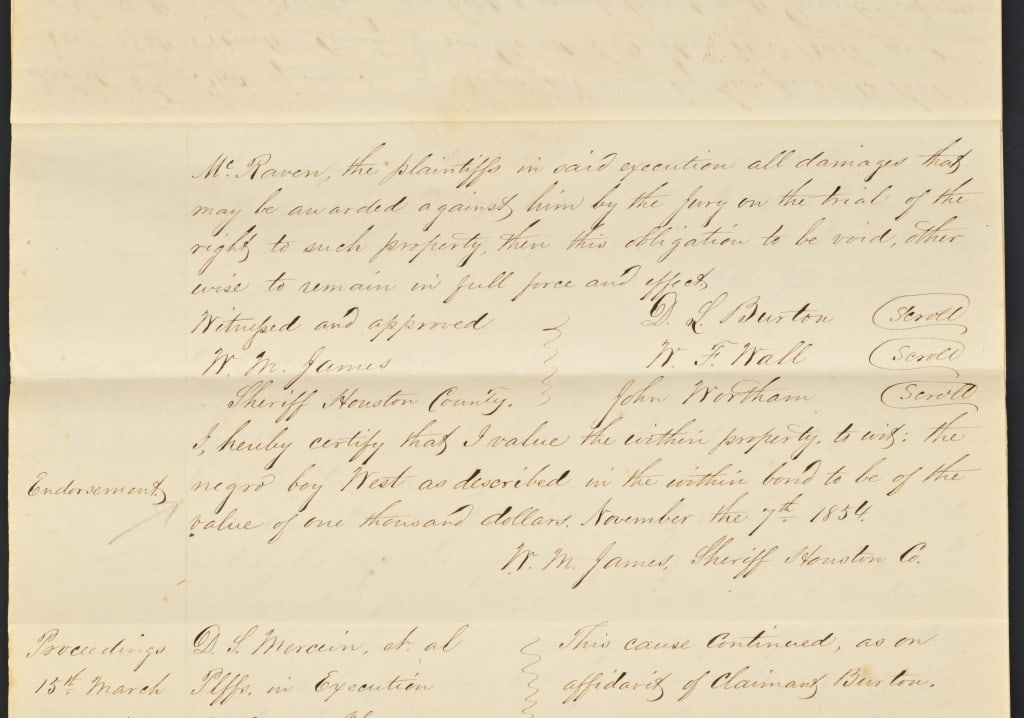 Mc. Raven, the plaintiffs in said execution all damages that
may be awarded against him by the jury on the trial of the
right to such property, then this obligation to be void, other
wise to remain in full force and effect
Witnessed and approved
W. M. James
Sheriff Houston County.
D. L. Burton (Scroll)
W. F. Wall (Scroll)
John Wortham (Scroll)
I, hereby certify that I value the within property, to wit: the
Endorsement negro boy West as described in the within bond to be of the
value of one thousand dollars. November the 7th 1854.
W. M. James, Sheriff Houston Co.
Proceedings
15th March
D. S. Mercein, et. al
Plffs. in Execution
This cause Continued, as on
affidavit of Claimant Burton.